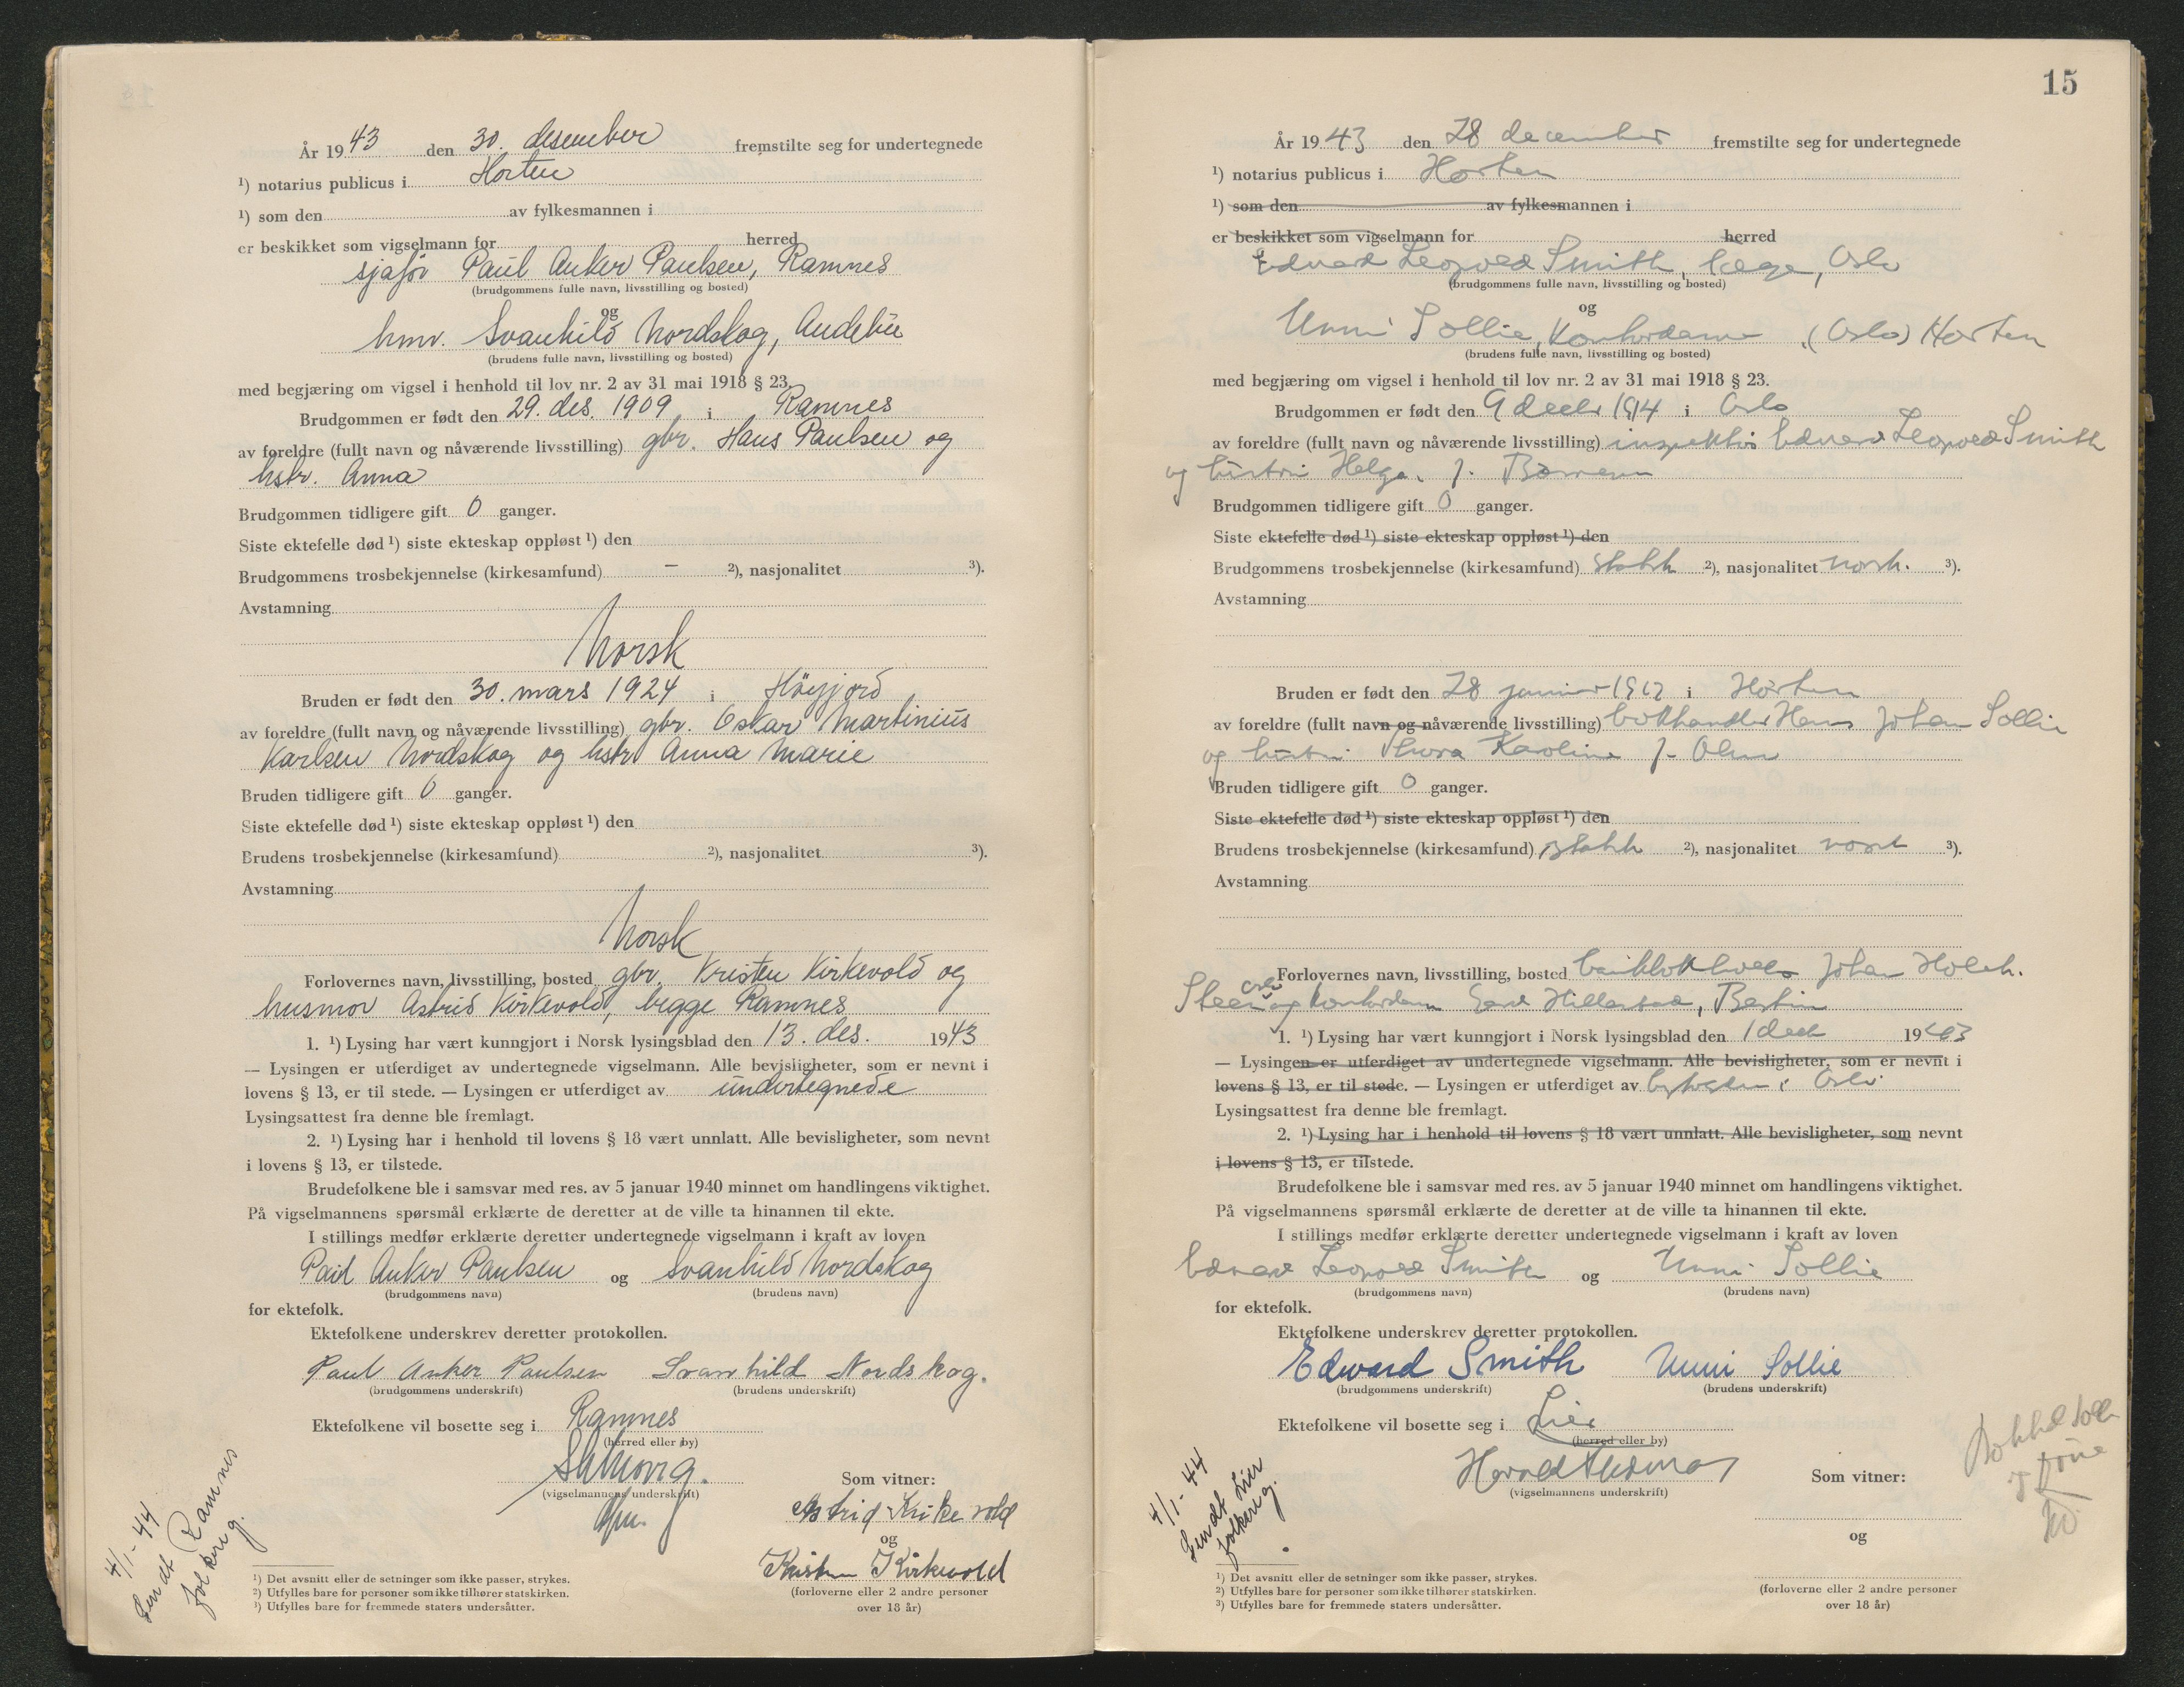 År 1943 den 30. desember fremstilte seg for undertegnede
¹) notarius publicus i Horten
¹) som den av fylkesmannen i
er beskikket som vigselmann for herred
sjafør Paul Anker Paulsen, Ramnes
(brudgommens fulle navn, livsstilling og bosted)
og
hmv. Svanhild Nordskog, Andebu
(brudens fulle navn, livsstilling og bosted)
med begjæring om vigsel i henhold til lov nr. 2 av 31 mai 1918 § 23.
Brudgommen er født den 29. des. 1909 i Ramnes
av foreldre (fullt navn og nåværende livsstilling) gbr. Hans Paulsen og
hstr. Anna
Brudgommen tidligere gift 0 ganger.
Siste ektefelle død ¹) siste ekteskap oppløst ¹) den
Brudgommens trosbekjennelse (kirkesamfund) – ²), nasjonalitet ³).
Avstamning
Norsk
Bruden er født den 30. mars 1924 i Høyjord
av foreldre (fullt navn og nåværende livsstilling) gbr. Oskar Martinius
Karlsen Nordskog og hstr Anna Marie
Bruden tidligere gift 0 ganger.
Siste ektefelle død ¹) siste ekteskap oppløst ¹) den
Brudens trosbekjennelse (kirkesamfund) ²), nasjonalitet ³).
Avstamning
Norsk
Forlovernes navn, livsstilling, bosted gbr. Kristen Kirkevold og
husmor Astrid Kirkevold, begge Ramnes
1. ¹) Lysing har vært kunngjort i Norsk lysingsblad den 13. des. 1943
— Lysingen er utferdiget av undertegnede vigselmann. Alle bevisligheter, som er nevnt i
lovens § 13, er til stede. — Lysingen er utferdiget av undertegnede
Lysingsattest fra denne ble fremlagt.
2. ¹) Lysing har i henhold til lovens § 18 vært unnlatt. Alle bevisligheter, som nevnt
i lovens § 13, er tilstede.
Brudefolkene ble i samsvar med res. av 5 januar 1940 minnet om handlingens viktighet.
På vigselmannens spørsmål erklærte de deretter at de ville ta hinannen til ekte.
I stillings medfør erklærte deretter undertegnede vigselmann i kraft av loven
Paul Anker Paulsen og Svanhild Nordskog
(brudgommens navn) (brudens navn)
for ektefolk.
Ektefolkene underskrev deretter protokollen.
Paul Anker Paulsen Svanhild Nordskog.
(brudgommens underskrift) (brudens underskrift)
Ektefolkene vil bosette seg i Ramnes
(herred eller by)
Som vitner:
(vigselmannens underskrift)
Astrid Kirkevold
og
Kristen Kirkevold
(forloverne eller 2 andre personer
over 18 år)
4/1-44
Sendt Ramnes
folkereg.
¹) Det avsnitt eller de setninger som ikke passer, strykes.
²) Utfylles bare for personer som ikke tilhører statskirken.
³) Utfylles bare for fremmede staters undersåtter.
15
År 1943 den 28 december fremstilte seg for undertegnede
¹) notarius publicus i Horten
¹) som den av fylkesmannen i
er beskikket som vigselmann for herred
Edvard Leopold Smith, læge, Oslo
(brudgommens fulle navn, livsstilling og bosted)
og
Unni Sollie, Kontordame, (Oslo) Horten
(brudens fulle navn, livsstilling og bosted)
med begjæring om vigsel i henhold til lov nr. 2 av 31 mai 1918 § 23.
Brudgommen er født den 9 decbr 1914 i Oslo
av foreldre (fullt navn og nåværende livsstilling) inspektør Edvard Leopold Smith
og hustru Helga f.
Brudgommen tidligere gift 0 ganger.
Siste ektefelle død ¹) siste ekteskap oppløst ¹) den
Brudgommens trosbekjennelse (kirkesamfund) statsk ²), nasjonalitet norsk. ³).
Avstamning
Bruden er født den 28 januar i Horten
av foreldre (fullt navn og nåværende livsstilling) bokhandler Hans Johan Sollie
og hustru Thora Karoline f. Olsen
Bruden tidligere gift 0 ganger.
Siste ektefelle død ¹) siste ekteskap oppløst ¹) den
Brudens trosbekjennelse (kirkesamfund) statsk ²), nasjonalitet norsk ³).
Avstamning
Forlovernes navn, livsstilling, bosted Johan Holch.
Steen Oslo og kontordame
1. ¹) Lysing har vært kunngjort i Norsk lysingsblad den 1 dec 1943
— Lysingen er utferdiget av undertegnede vigselmann. Alle bevisligheter, som er nevnt i
lovens § 13, er til stede. — Lysingen er utferdiget av byfogden i Oslo
Lysingsattest fra denne ble fremlagt.
2. ¹) Lysing har i henhold til lovens § 18 vært unnlatt. Alle bevisligheter, som nevnt
i lovens § 13, er tilstede.
Brudefolkene ble i samsvar med res. av 5 januar 1940 minnet om handlingens viktighet.
På vigselmannens spørsmål erklærte de deretter at de ville ta hinannen til ekte.
I stillings medfør erklærte deretter undertegnede vigselmann i kraft av loven
Edvard Leopold Smith og Unni Sollie
(brudgommens navn) (brudens navn)
for ektefolk.
Ektefolkene underskrev deretter protokollen.
Edward Smith Unni Sollie
(brudgommens underskrift) (brudens underskrift)
Ektefolkene vil bosette seg i Lier
(herred eller by)
Harald
Som vitner:
(vigselmannens underskrift)
og
(forloverne eller 2 andre personer
over 18 år)
4/1-44
Sendt Lier
folkereg.
¹) Det avsnitt eller de setninger som ikke passer, strykes.
²) Utfylles bare for personer som ikke tilhører statskirken.
³) Utfylles bare for fremmede staters undersåtter.